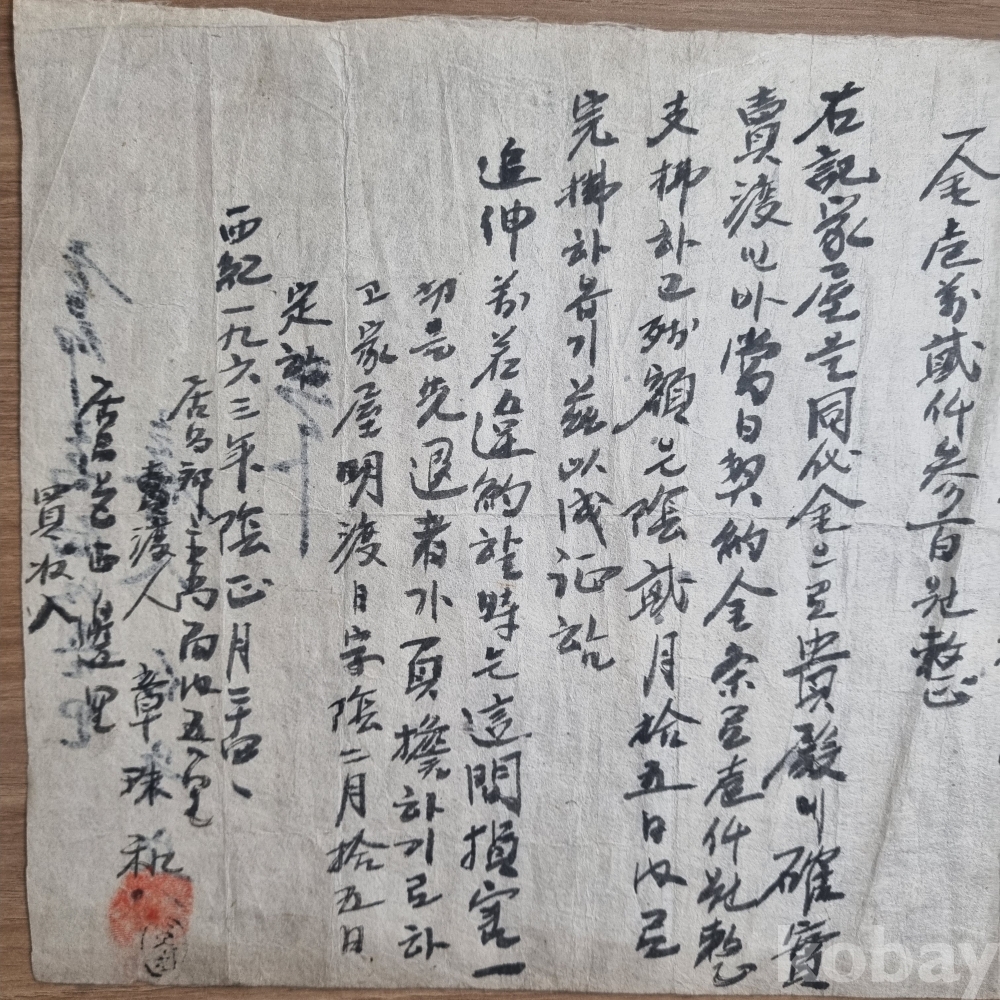 一金壱萬貳仟參百원整
右記家屋을同代金으로貴殿에確實
賣渡이바當日契約金条로壱仟원整
支拂하고殘額은陰貳月拾五日內로
完拂하옵기玆以成证함
追伸 萬若違約할時는這間損害一
切을先退者가負擔하기로하
고家屋明渡日字陰二月拾五日
定함
西紀一九六三年陰正月二十四日
居昌郡主尚面內五里
賣渡人 章珠
居昌邑正邊里
買收人
kobay